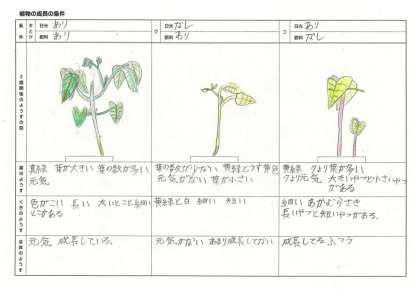 植物の成長の条件
条件
日光 あり
肥料 あり
ク
日光 なし
肥料 あり
コ
日光 あり
肥料 なし
2週間後のようすの図
葉のようす
真緑 葉が大きい 葉の数が多い
元気。
葉の数が少ない 黄緑とうす黄色
元気がない 葉が小さい
黄緑 クより葉が多い
クより元気。大きいやつと小さいやつ
がある
くきのようす
色がこい 長い 太いとこと細い
とこがある
黄緑と白 細い 短い
細い あかむらさき
長いやつと短いやつがある。
全体のようす
元気 成長している。
元気がない あまり成長してない
成長してる ふつう